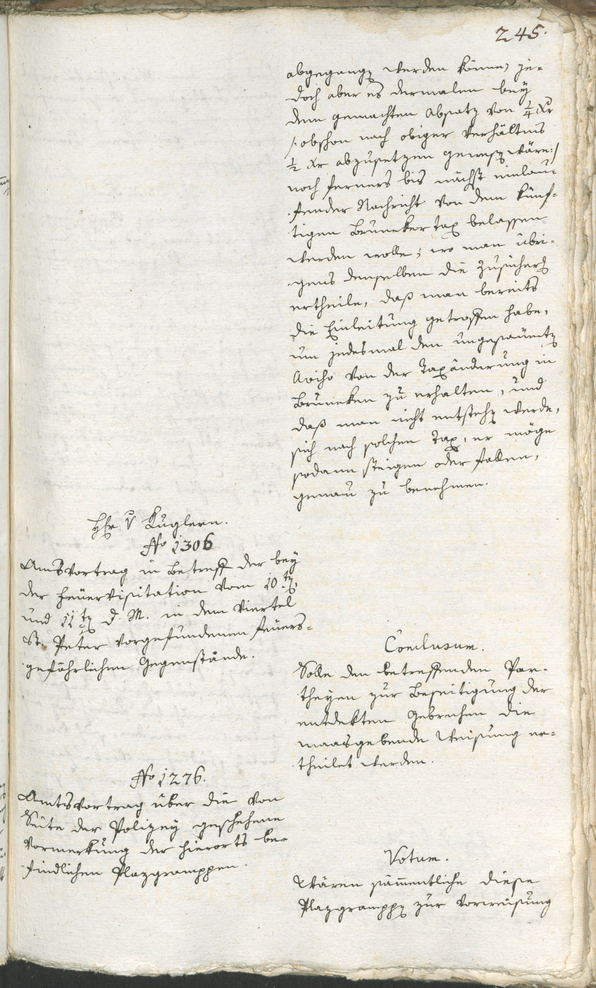 245.
abgegangen werden könne, je-
doch aber es dermalen bey
dem gemachten Absatz von 1/4 xr
/: obschon nach obiger Verhältnis
1/2 xr abzusetzen gewesen wäre :/
noch ferners bis nächst einlau-
fender Nachricht von dem künf-
tigen Bruneker Tax belassen
werden wolle; wo man übri-
gens denselben die Zusicherung
ertheile, daß man bereits
die Einleitung getroffen habe,
um jedesmal den ungesäumten
Aviso von der Taxänderung in
Bruneken zu erhalten, und
daß man nicht entstehen werde,
sich nach solchen Tax, er möge
sodann steigen oder fallen,
genau zu benehmen.
Hr. v Kuglern.
No 1306
Amtsvortrag in Betreff der bey
der Feuervisitation vom 10ten
und 11ten d. M. in dem Viertel
St. Peter vorgefundenen feuers-
gefährlichen Gegenstände.
Conclusum.
Solle den betreffenden Par-
theyen zur Beseitigung der
entdekten Gebrechen die
maasgebende Weisung er-
theilet werden.
No 1276.
Amtsvortrag über die von
Seite der Polizey geschehene
Vormerkung der hierorts be-
findlichen Plazgramppen.
Votum.
Wären sämmentliche diese
Plazgramppen zur Vorweisung